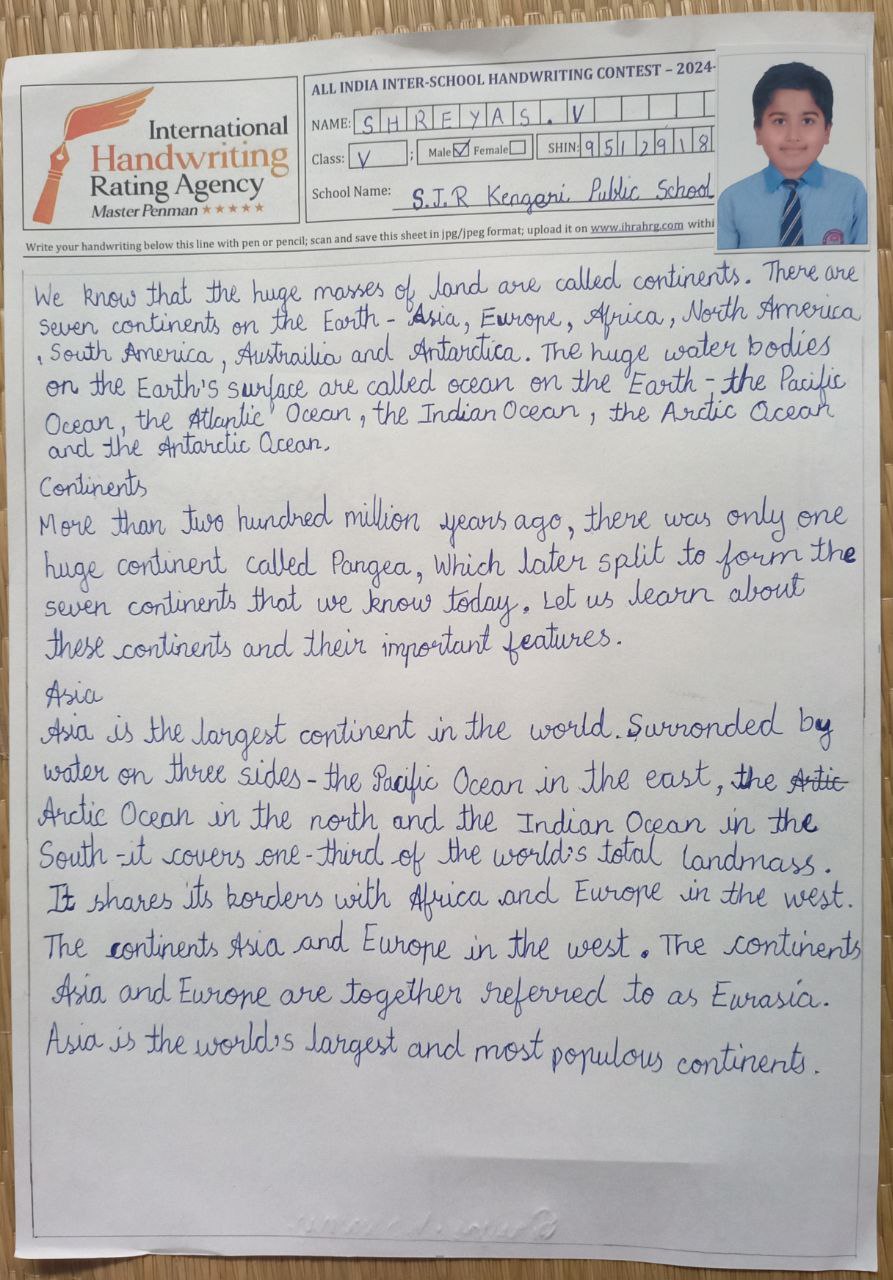 ALL INDIA INTER-SCHOOL HANDWRITING CONTEST – 2024-
International
Handwriting
Rating Agency
Master Penman ★★★★★
NAME: SHREYAS.V
Class: V ; Male☑ Female☐ SHIN: 9512918
School Name: S.J.R Kengari Public School
Write your handwriting below this line with pen or pencil; scan and save this sheet in jpg/jpeg format; upload it on www.ihrahrg.com withi
We know that the huge masses of land are called continents. There are
seven continents on the Earth - Asia, Europe, Africa, North America
, South America, Austrailia and Antarctica. The huge water bodies
on the Earth's surface are called ocean on the Earth - the Pacific
Ocean, the Atlantic Ocean, the Indian Ocean, the Arctic Ocean
and the Antarctic Ocean.
Continents
More than two hundred million years ago, there was only one
huge continent called Pangea, Which later split to form the
seven continents that we know today. Let us learn about
these continents and their important features.
Asia
Asia is the largest continent in the world. Surronded by
water on three sides - the Pacific Ocean in the east, the Artic
Arctic Ocean in the north and the Indian Ocean in the
South - it covers one-third of the world's total landmass.
It shares its borders with Africa and Europe in the west.
The continents Asia and Europe in the west. The continents
Asia and Europe are together referred to as Eurasia.
Asia is the world's largest and most populous continents.